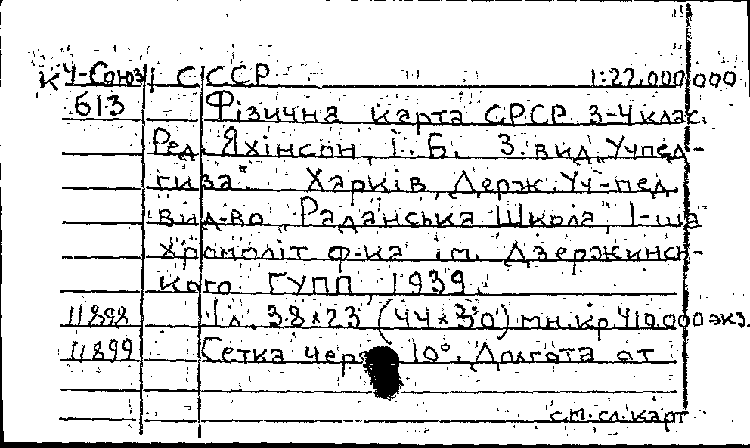 К У-Союз СССР 1:22.000.000
613 Фізична карта СРСР 3-4 клас.
Ред. Яхінсон, І. Б. 3. вид. „Учпед-
гиза“. Харків, Держ. Уч-пед.
вид-во „Радянська Школа“, 1-ша
хромоліт ф-ка ім. Дзержинсь-
кого ГУПП, 1939.
11898 1 л. 38х23 (44х30) мн.кр. 410.000 экз.
11899 Сетка через 10°. Долгота от
см. сл. карт